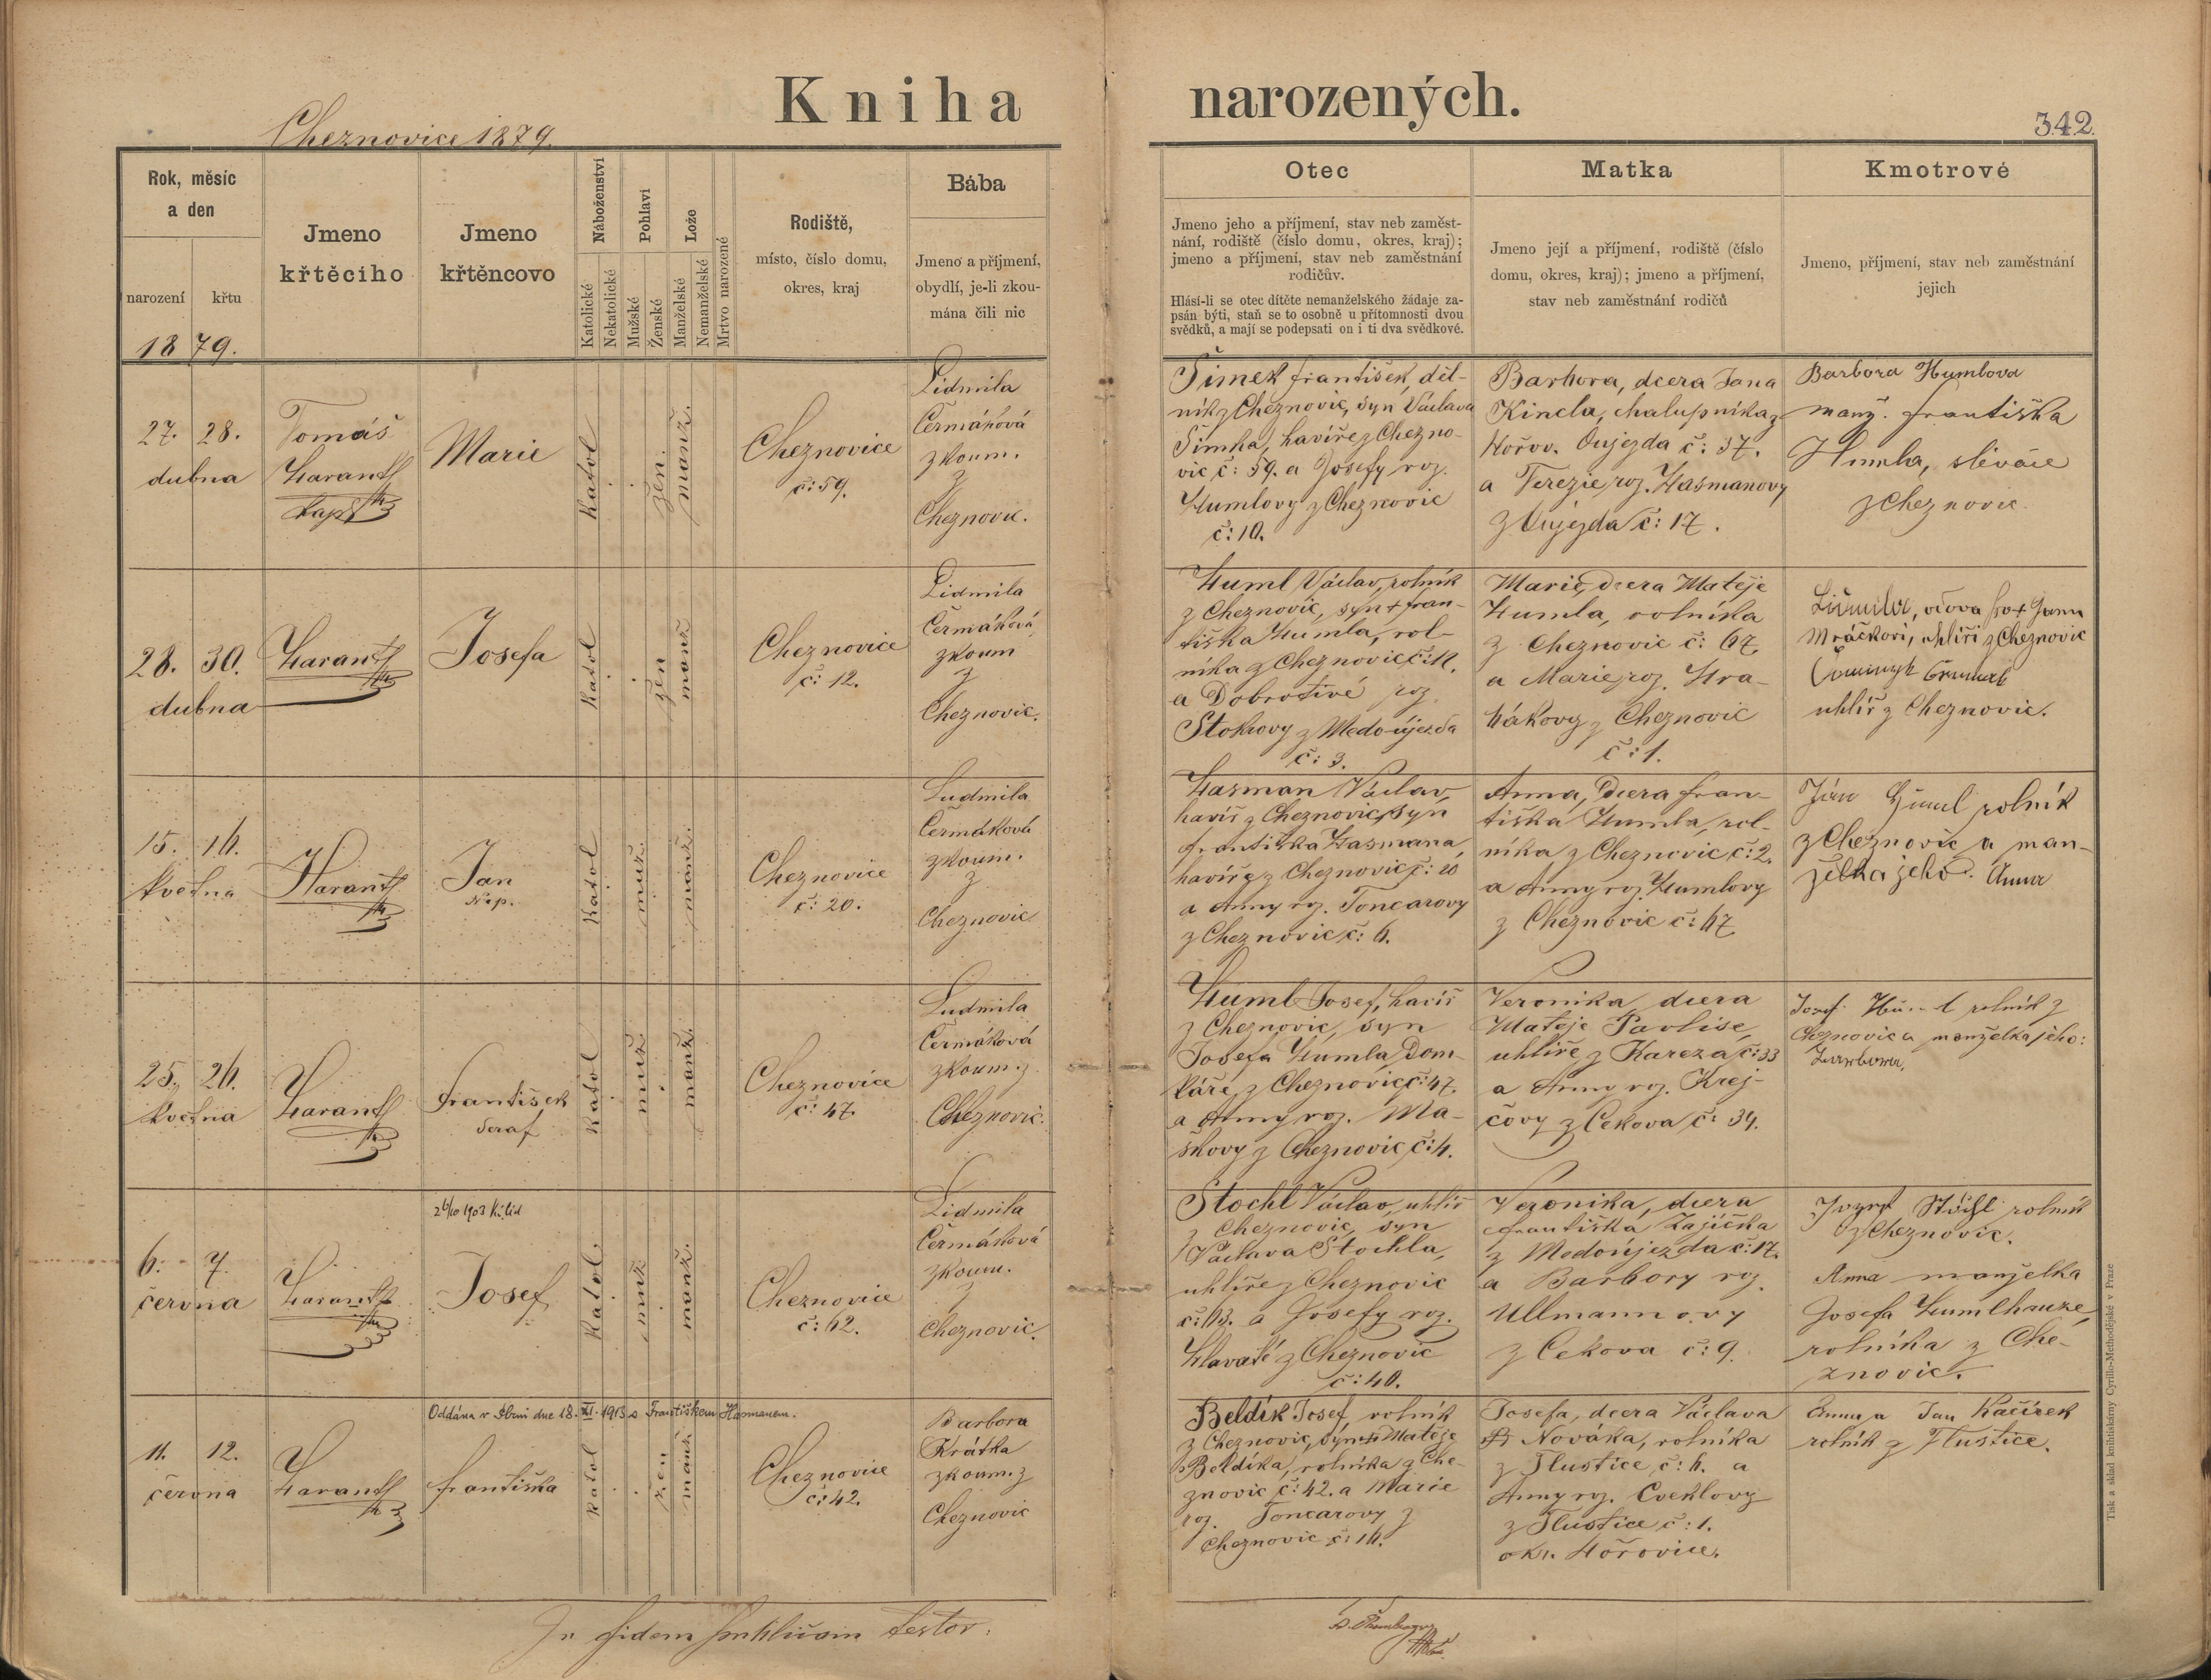 Kniha narozených.
Cheznovice 1879.
342.
Rok, měsíc
a den
narození
křtu
1879.
Jmeno
křtěcího
Jmeno
křtěncovo
Náboženství
Katolické
Nekatolické
Pohlaví
Mužské
Ženské
Lože
Manželské
Nemanželské
Mrtvo narozené
Rodiště,
místo, číslo domu,
okres, kraj
Bába
Jmeno a příjmení,
obydlí, je-li zkou-
mána čili nic
Otec
Jmeno jeho a příjmení, stav neb zaměst-
nání, rodiště (číslo domu, okres, kraj);
jmeno a příjmení, stav neb zaměstnání
rodičův.
Hlásí-li se otec dítěte nemanželského žádaje za-
psán býti, staň se to osobně u přítomnosti dvou
svědků, a mají se podepsati on i ti dva svědkové.
Matka
Jmeno její a příjmení, rodiště (číslo
domu, okres, kraj); jmeno a příjmení,
stav neb zaměstnání rodičů
Kmotrové
Jmeno, příjmení, stav neb zaměstnání
jejich
27. 28.
dubna
Tomáš
Haranth
kap.
Marie
Katol
žen.
manž.
Cheznovice
č: 59.
Lidmila
Čermáková
zkoum.
z
Cheznovic.
Šimek František, děl-
ník z Cheznovic, syn Václava
Šimka, havíře z Chezno-
vic č: 59. a Josefy roz.
Humlovy z Cheznovic
č: 10.
Barbora, dcera Jana
Kincla, chalupníka z
Hořov. Oujezda č: 37.
a Terezie, roz. Hasmanovy
z Oujezda č: 17.
Barbora Humlova
manž. Františka
Humla, slévače
z Cheznovic
28. 30.
dubna
Haranth
Josefa
Katol
žen
manž
Cheznovice
č: 12.
Lidmila
Čermáková
zkoum
z
Cheznovic.
Huml Václav, rolník
z Cheznovic, syn + Fran-
tiška Humla, rol-
níka z Cheznovic č: 12.
a Dobrotivé roz.
Stokrovy z Medo-újezda
č: 3.
Marie, dcera Matěje
Humla, rolníka
z Cheznovic č: 67.
a Marie, roz. Hra-
bákovy z Cheznovic
č: 1.
Lidmila, vdova po + Janu
Mráčkovi, uhlíři z Cheznovic
uhlíř z Cheznovic.
15. 16.
května
Haranth
Jan
Nep.
Katol
muž.
manž.
Cheznovice
č: 20.
Ludmila
Čermáková
zkoum.
z
Cheznovic
Hasman Václav,
havíř z Cheznovic, syn
Františka Hasmana,
havíře z Cheznovic č: 20
a Anny roz. Toncarovy
z Cheznovic č: 6.
Anna, dcera Fran-
tiška Humla, rol-
níka z Cheznovic č: 2.
a Anny roz. Humlovy
z Cheznovic č: 67
Jan Huml rolník
z Cheznovic a man-
želka jeho. Anna
25. 26.
května
Haranth
František
Seraf
Katol
muž.
manž.
Cheznovice
č: 47.
Ludmila
Čermáková
zkoum. z
Cheznovic.
Huml Josef, havíř
z Cheznovic, syn
Josefa Humla, dom-
káře z Cheznovic č: 47.
a Anny roz. Ma-
škovy z Cheznovic č: 4.
Veronika, dcera
Matěje Pavlise,
uhlíře z Kareza č: 33
a Anny roz. Krej-
čovy z Cekova č: 34.
Josef Huml rolník z
Cheznovic a manželka jeho:
Barbora,
6. 7.
června
Haranth
26/10 1903 kř. list
Josef
Katol.
muž
manž.
Cheznovice
č: 62.
Lidmila
Čermáková
zkoum.
z
Cheznovic.
Stochl Václav, uhlíř
z Cheznovic, syn
Václava Stochla,
uhlíře z Cheznovic
č: 63. a Josefy roz.
Hlavaté z Cheznovic
č: 40.
Veronika, dcera
Františka Zajíčka
z Medoújezda č: 17.
a Barbory roz.
Ullmannovy
z Cekova č: 9.
Stöchl rolník
z Cheznovic.
Anna manželka
Josefa Humlhanze,
rolníka z Che-
znovic.
11. 12.
června
Haranth
Oddána v dne 18. XI. 1913 s Františkem Hasmanem.
Františka
Katol
žen
manž
Cheznovice
č: 42.
Barbora
Krátka
zkoum. z
Cheznovic
Beldík Josef, rolník
z Cheznovic, syn + Matěje
Beldíka, rolníka z Che-
znovic č: 42. a Marie
roz. Toncarovy z
Cheznovic č: 16.
Josefa, dcera Václava
Nováka, rolníka
z Tlustice č: 6. a
Anny roz. Cveklovy
z Tlustice č: 1.
okr. Hořovice.
Anna a Jan Kačírek
rolník z Tlustice.
In fidem testor:
Tisk a sklad knihtiskárny Cyrillo-Methodějské v Praze